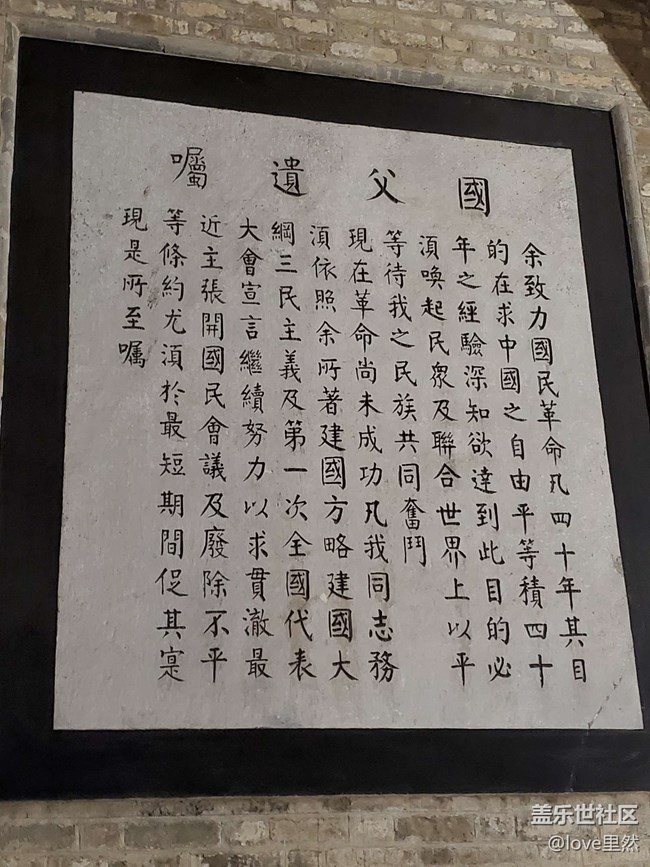 國父遺囑
余致力國民革命凡四十年其目
的在求中國之自由平等積四十
年之經驗深知欲達到此目的必
須喚起民眾及聯合世界上以平
等待我之民族共同奮鬥
現在革命尚未成功凡我同志務
須依照余所著建國方略建國大
綱三民主義及第一次全國代表
大會宣言繼續努力以求貫澈最
近主張開國民會議及廢除不平
等條約尤須於最短期間促其寔
現是所至囑
盖乐世社区
@love里然